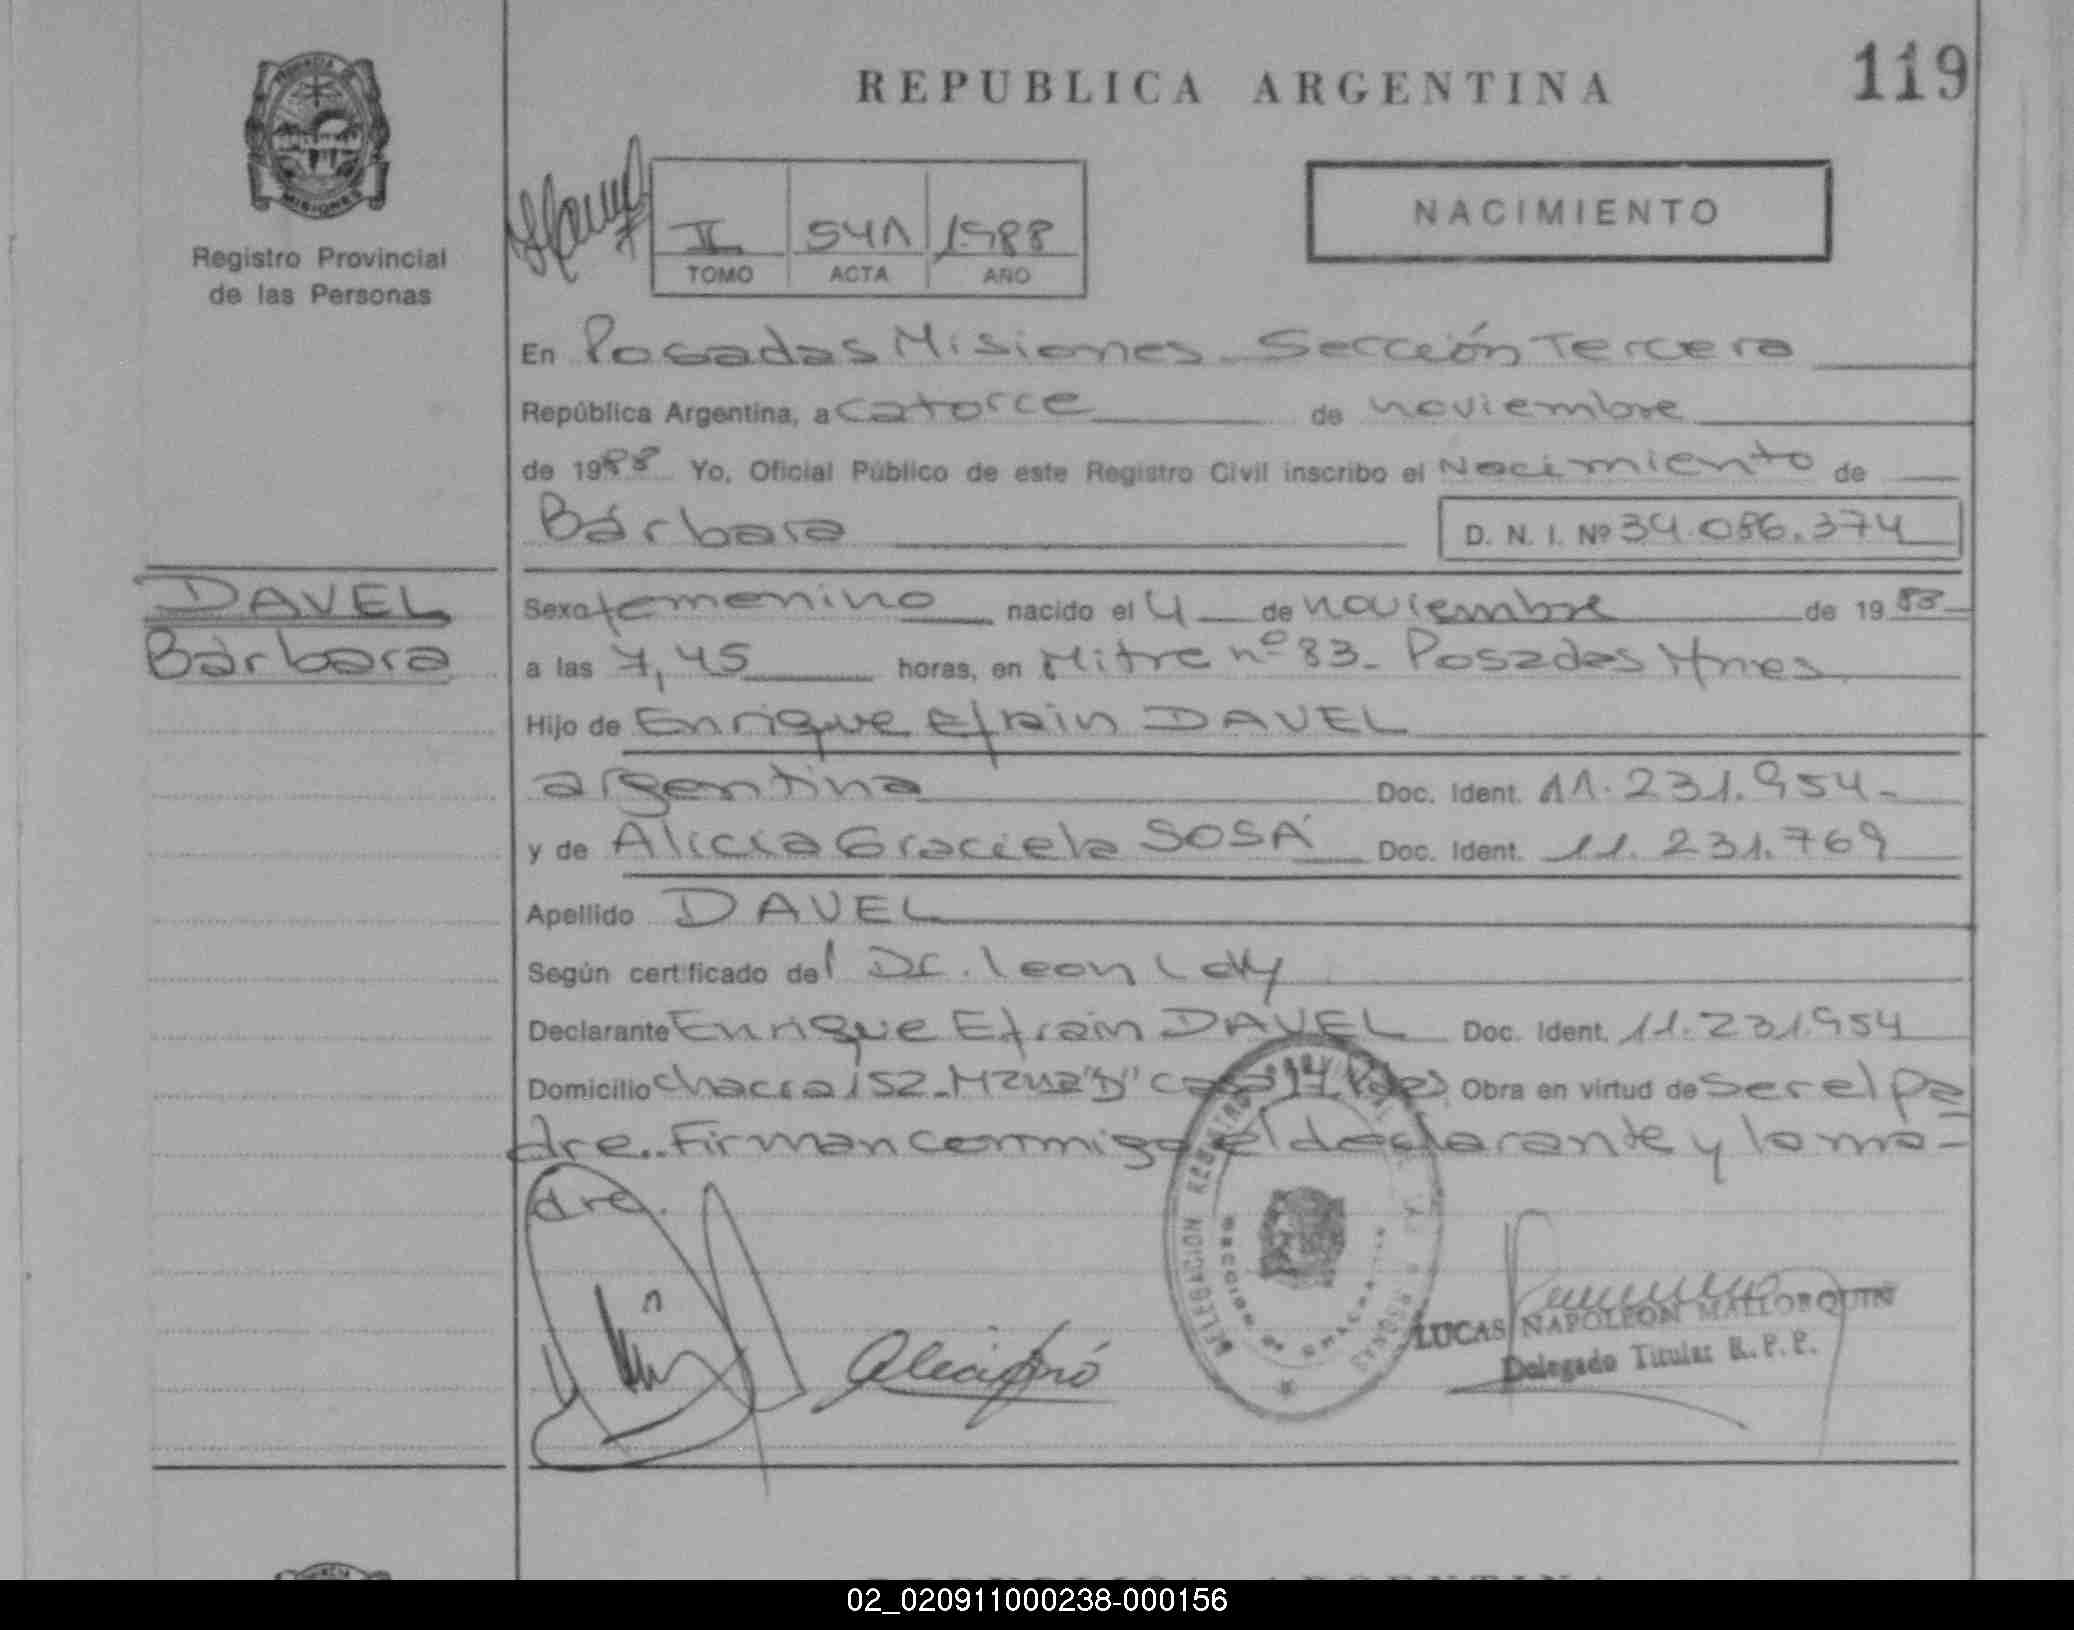 REPUBLICA ARGENTINA
119
PROVINCIA DE
MISIONES
Registro Provincial
de las Personas
II
541
1988
TOMO
ACTA
AÑO
NACIMIENTO
En Posadas Misiones - Sección Tercera
República Argentina, a catorce de noviembre
de 1988 Yo, Oficial Público de este Registro Civil inscribo el Nacimiento de
Bárbara
D. N. I. Nº 34.086.374
DAVEL
Bárbara
Sexo femenino nacido el 4 de noviembre de 1988
a las 7,45 horas, en Mitre nº 83 - Posadas Mnes
Hijo de Enrique Efrain DAVEL
argentina Doc. Ident. 11.231.954-
y de Alicia Graciela SOSA Doc. Ident. 11.231.769
Apellido DAVEL
Según certificado del Dr. Leon
Declarante Enrique Efrain DAVEL Doc. Ident. 11.231.954
Domicilio chacra 152 - Mzna "D" casa Pdas Obra en virtud de ser el pa
dre.. Firman conmigo el declarante y la ma-
dre.
DELEGACION
LUCAS NAPOLEON MALLORQUIN
Delegado Titular R. P. P.
02_020911000238-000156